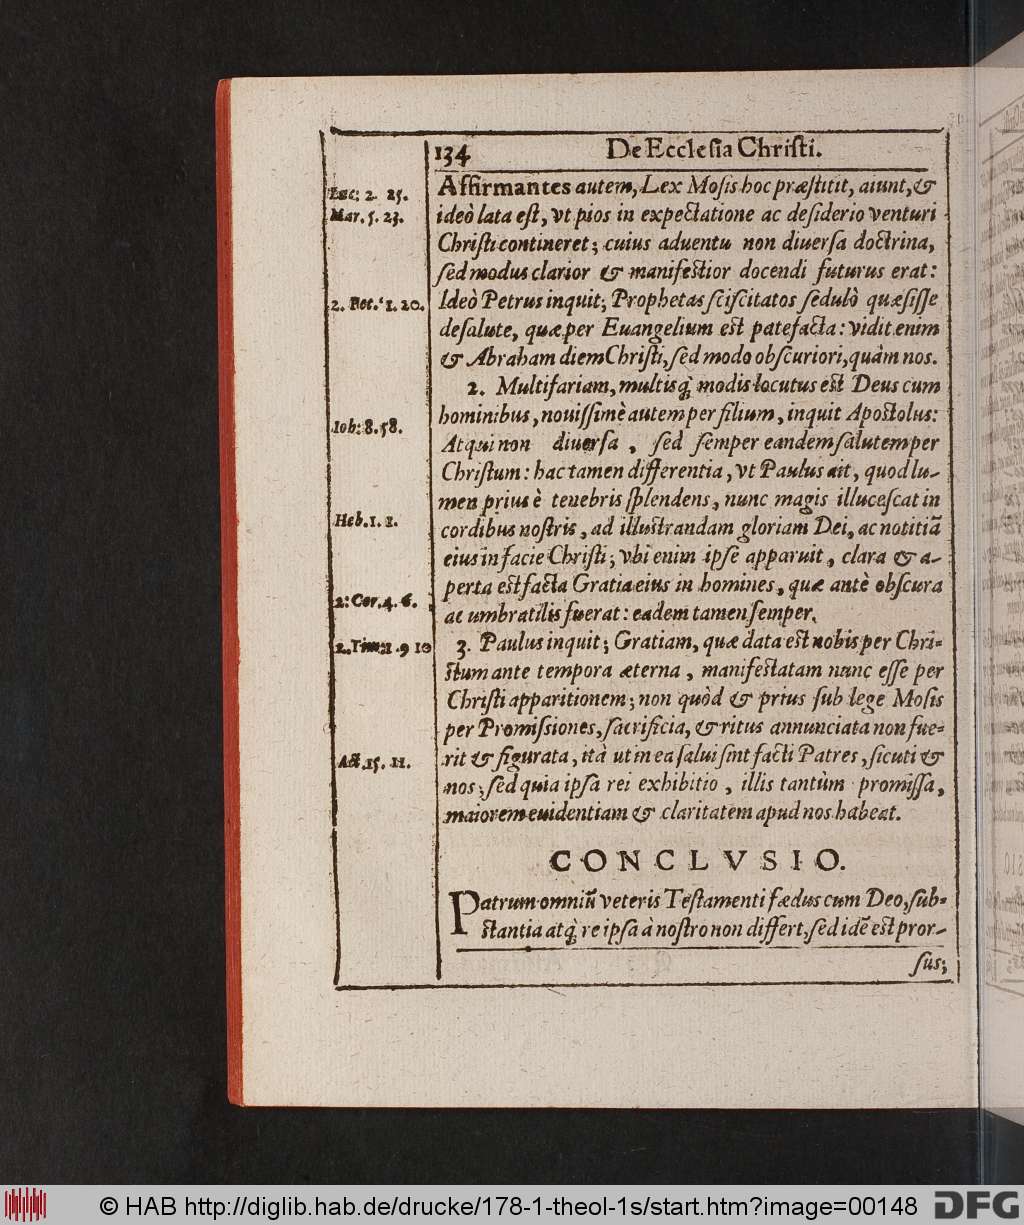 134
De Ecclesia Christi.
Luc: 2. 25.
Mar. 5. 23.
2. Pet. 1. 20.
Ioh: 8. 58.
Heb. 1. 1.
2: Cor. 4. 6.
2. Tim: 1. 9 10
Act. 15. 11.
Affirmantes autem, Lex Mosis hoc præstitit, aiunt, &
ideò lata est, vt pios in expectatione ac desiderio venturi
Christi contineret; cuius aduentu non diuersa doctrina,
sed modus clarior & manifestior docendi futurus erat:
Ideò Petrus inquit; Prophetas sciscitatos sedulò quæsisse
de salute, quæ per Euangelium est patefacta: vidit enim
& Abraham diem Christi, sed modo obscuriori, quàm nos.
2. Multifariam, multisq; modis locutus est Deus cum
hominibus, nouissimè autem per filium, inquit Apostolus:
Atqui non diuersa, sed semper eandem salutem per
Christum: hac tamen differentia, vt Paulus ait, quod lu-
men prius è tenebris splendens, nunc magis illucescat in
cordibus nostris, ad illustrandam gloriam Dei, ac notitiã
eius in facie Christi; vbi enim ipse apparuit, clara & a-
perta est facta Gratia eius in homines, quæ antè obscura
ac umbratilis fuerat: eadem tamen semper.
3. Paulus inquit; Gratiam, quæ data est nobis per Chri-
stum ante tempora æterna, manifestatam nunc esse per
Christi apparitionem; non quòd & prius sub lege Mosis
per Promissiones, sacrificia, & ritus annunciata non fue-
rit & figurata, ità ut in ea salui sint facti Patres, sicuti &
nos; sed quia ipsa rei exhibitio, illis tantùm promissa,
maiorem euidentiam & claritatem apud nos habeat.
CONCLVSIO.
Patrum omniũ veteris Testamenti fædus cum Deo, sub-
stantia atq; re ipsa à nostro non differt, sed idẽ est pror-
sus;
© HAB http://diglib.hab.de/drucke/178-1-theol-1s/start.htm?image=00148
DFG